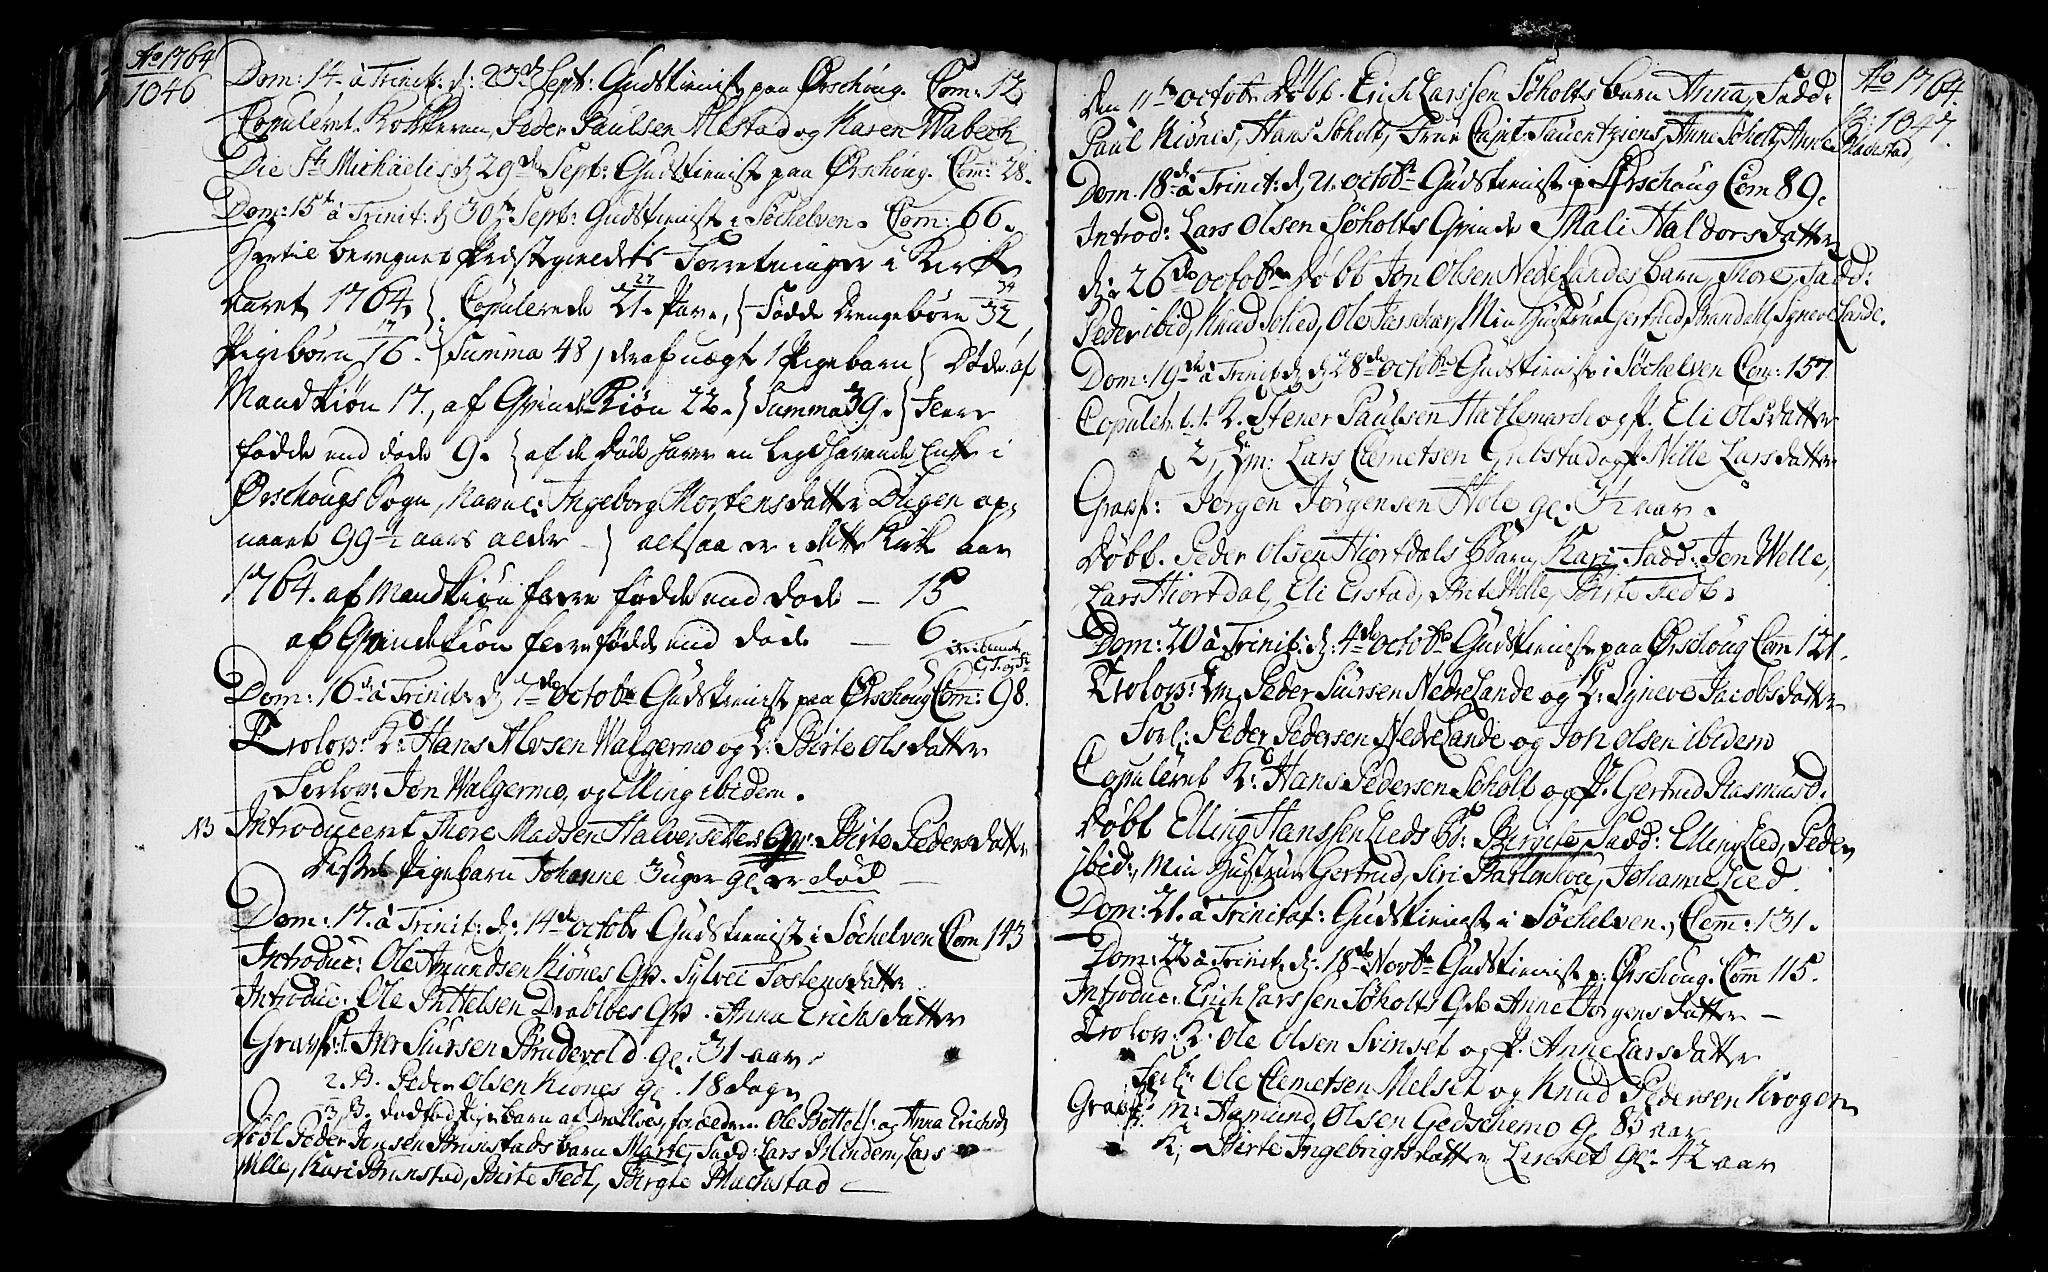 Ao 1764
1046
Dom: 14. à Trinit: d: 23de Sept: Gudstieniste paa Ørschoug. Com: 12
Copuleret: Peder Paulsen Alestad og Karen Wabech
Die St. Michaelis d 29de Sept: Gudstieniste paa Ørschoug. Com: 28.
Dom: 15de à Trinit: d 30 Sept: Gudstieniste i Söchelven. Com: 66.
Hertil beregnet Præstegieldets Forretninger i Kirke
Aaret 1764 Copulerede 27 21. Par, Födde Drengebörn 34 32
Pigebörn 17 16. Summa 48, deraf uægt 1 Pigebarn Döde af
Mandkiön 17., af Qvindekiön 22. Summa 39. Flere
födde end döde 9. af de Döde
Ørschougs Sogn, Navnl: Ingeborg Mortensdatter op-
naaet 99½ aars alder altsaa er i dette Kirke aar
1764. af Mandkiön flere födde end döde — 15
af Qvindekiön flere födde end döde — 6
Dom: 16de à Trinit: d 7de Octobr Gudstieniste paa Ørschoug Com: 98.
Trolov: K: Hans Alvsen Walgermo og P: Birte Olsdatter
Forlov: Jon Walgermo, og Elling ibidem.
NB Introduceret Thore Madsen Halversettes Qv: Birte Pedersdatter
Pigebarn Johanne 3 uger gl. er död —
Dom: 17. à Trinit: d: 14de Octobr Gudstieniste i Söchelven Com 143
Introduc: Ole Amundsen Kiönes Qv. Sylvei Tostensdatter
Introduc: Ole Drabloes Qv. Anna Erichsdatter
Gravf: 1. Iver Siursen Brudevold. gl: 31 aar.
2. B. Peder Olsen Kiones gl. 18 dage
3. B. dödföd Pigebarn af Drablöes, forældre Ole og Anna Erichsd
Döbt Peder Jensen Brunstads barn Marte, Fadd: Lars Mundem, Lars
Wille, Kari Brunstad, Birte Fedt, Birgte Blachstad —
Ao 1764.
p: 1047.
Den 11te Octobr Döbt Erich Larssen Söholts barn Anna, Fadd:
Paul Kiönes, Hans Söholt, Frue Capit: Anne Söholt, Anne Blachstad,
Dom: 18de à Trinit: d. 21. Octobr Gudstieniste p. Ørschoug Com 89.
Introd: Lars Olsen Söholts Qvinde Mali Haldorsdatter
d: 26de Octobr Döbt Jon Olsen Nedrelandes barn, Thore, Fadd:
Peder ibid, Knud Solied, Ole Min Hustrue Gertrud Strandahl, Syneve Lande.
Dom: 19de à Trinit: d 28de Octobr Gudstieniste i Söchelven Com: 157.
Copuler: 1. K. Stener Paulsen Hatlemarch og P. Eli Olsdatter
2, Em: Lars Clemetsen Grebstad og P. Nille Larsdatter
Gravf: Jergen Jörgensen Hole gl. 3½ aar.
Döbt. Peder Olsen Hiortdals barn, Kari, Fadd: Jon Welle,
Lars Hiortdal, Eli Erstad, Birte Welle, Birte Fedt:
Dom: 20 à Trinit: d: 4de Octobr Gudstieniste paa Ørschoug Com 121.
Trolov: Em. Peder Siursen Nedrelande og P: Syneve Jacobsdatter
Forl: Peder Pedersen Nedrelande og Jon Olsen ibidem
Copuleret K: Hans Pedersen Söholt og P. Gertrud Rasmusd.
Döbt Elling Hanssen Lieds B: Birgite, Fadd: Elling Lied, Peder
ibid:, Min Hustrue Gertrud, Siri Johanne Lied.
Dom: 21. à Trinitat: Gudstieniste i Söchelven., Com: 131.
Dom: 22 à Trinit: d: 18de Novbr Gudstieniste p. Ørschoug. Com 115.
Introduc: Erich Larssen Söholts Qde Anne Jörgensdatter —
Trolov: K. Ole Olsen Svinset og P. Anne Larsdatter
Forl: Ole Clemetsen Melset og Knud Pedersen Krogen
Gravf: M: Asmund Olsen Gedschemo gl. 85 aar
K; Birte Ingebrigtsdatter gl. 42 aar